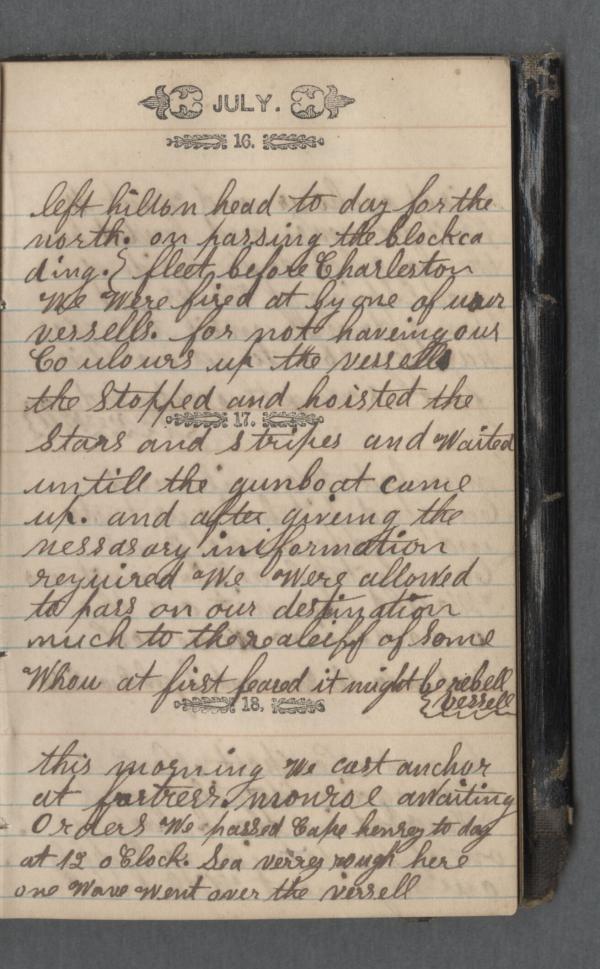 JULY.
16.
left hilton head to day for the
north. on passing the blockca
ding. } fleet before Charleston
We Were fired at by one of our
verssells. for not haveing our
Co ulours up the verssells
the Stopped and hoisted the
17.
Stars and stripes and Waited
untill the gunboat came
up. and after giveing the
nessasary iniformation
required We Were allowed
to pass on our destination
much to the realeiff of Some
Whou at first feared it might be rebell
verssell
18.
this morning We cast anchor
at fortress. monroe awaiting
Orders We passed Cape henrey to day
at 12 o Clock. Sea verrey rough here
one Wave Went over the verssell